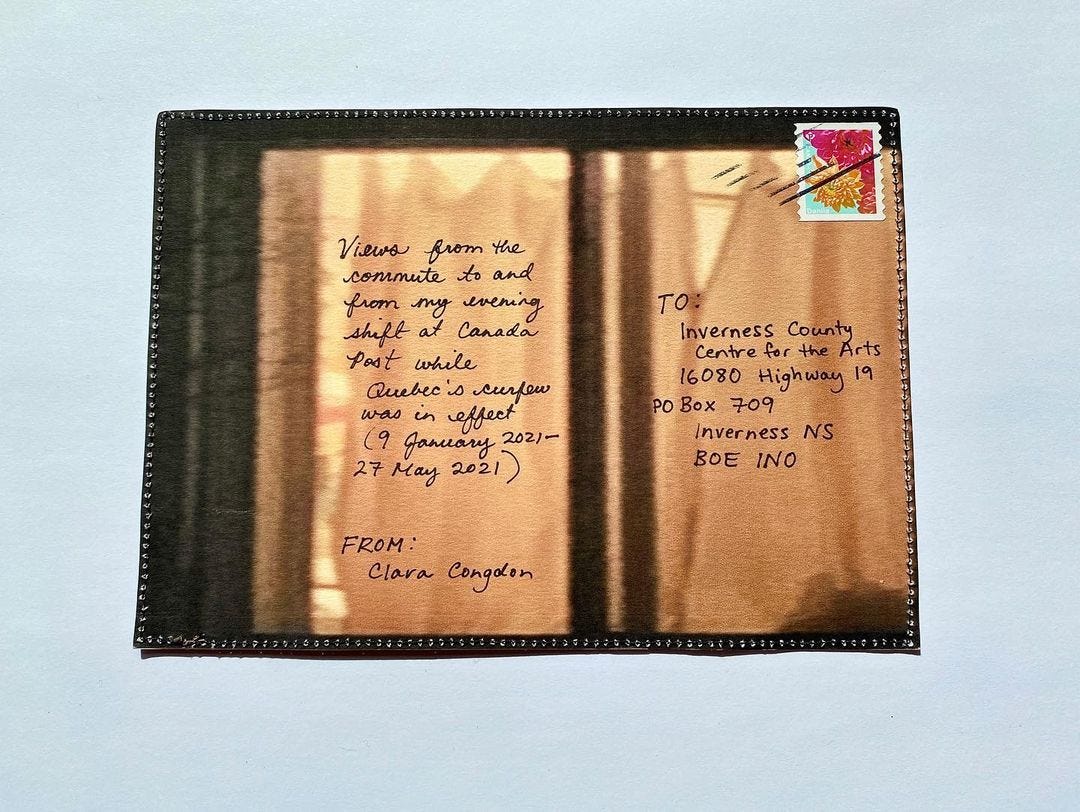 Views from the
commute to and
from my evening
shift at Canada
Post while
Quebec's curfew
was in effect
(9 January 2021–
27 May 2021)
FROM:
Clara Congdon
P
TO:
Inverness County
Centre for the Arts
16080 Highway 19
PO Box 709
Inverness NS
BOE 1NO